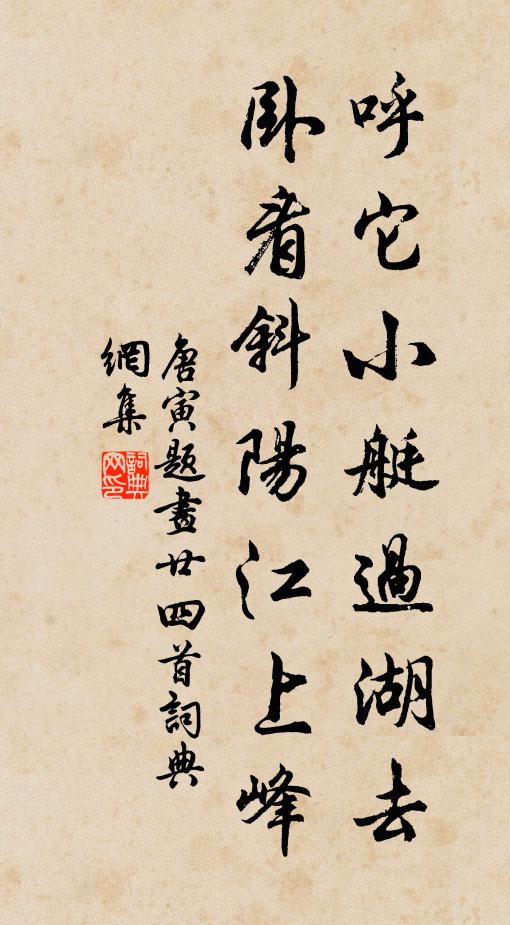 呼它小艇過湖去
卧看斜陽江上峰
唐寅題畫廿四首詞典
網集
詞典網印